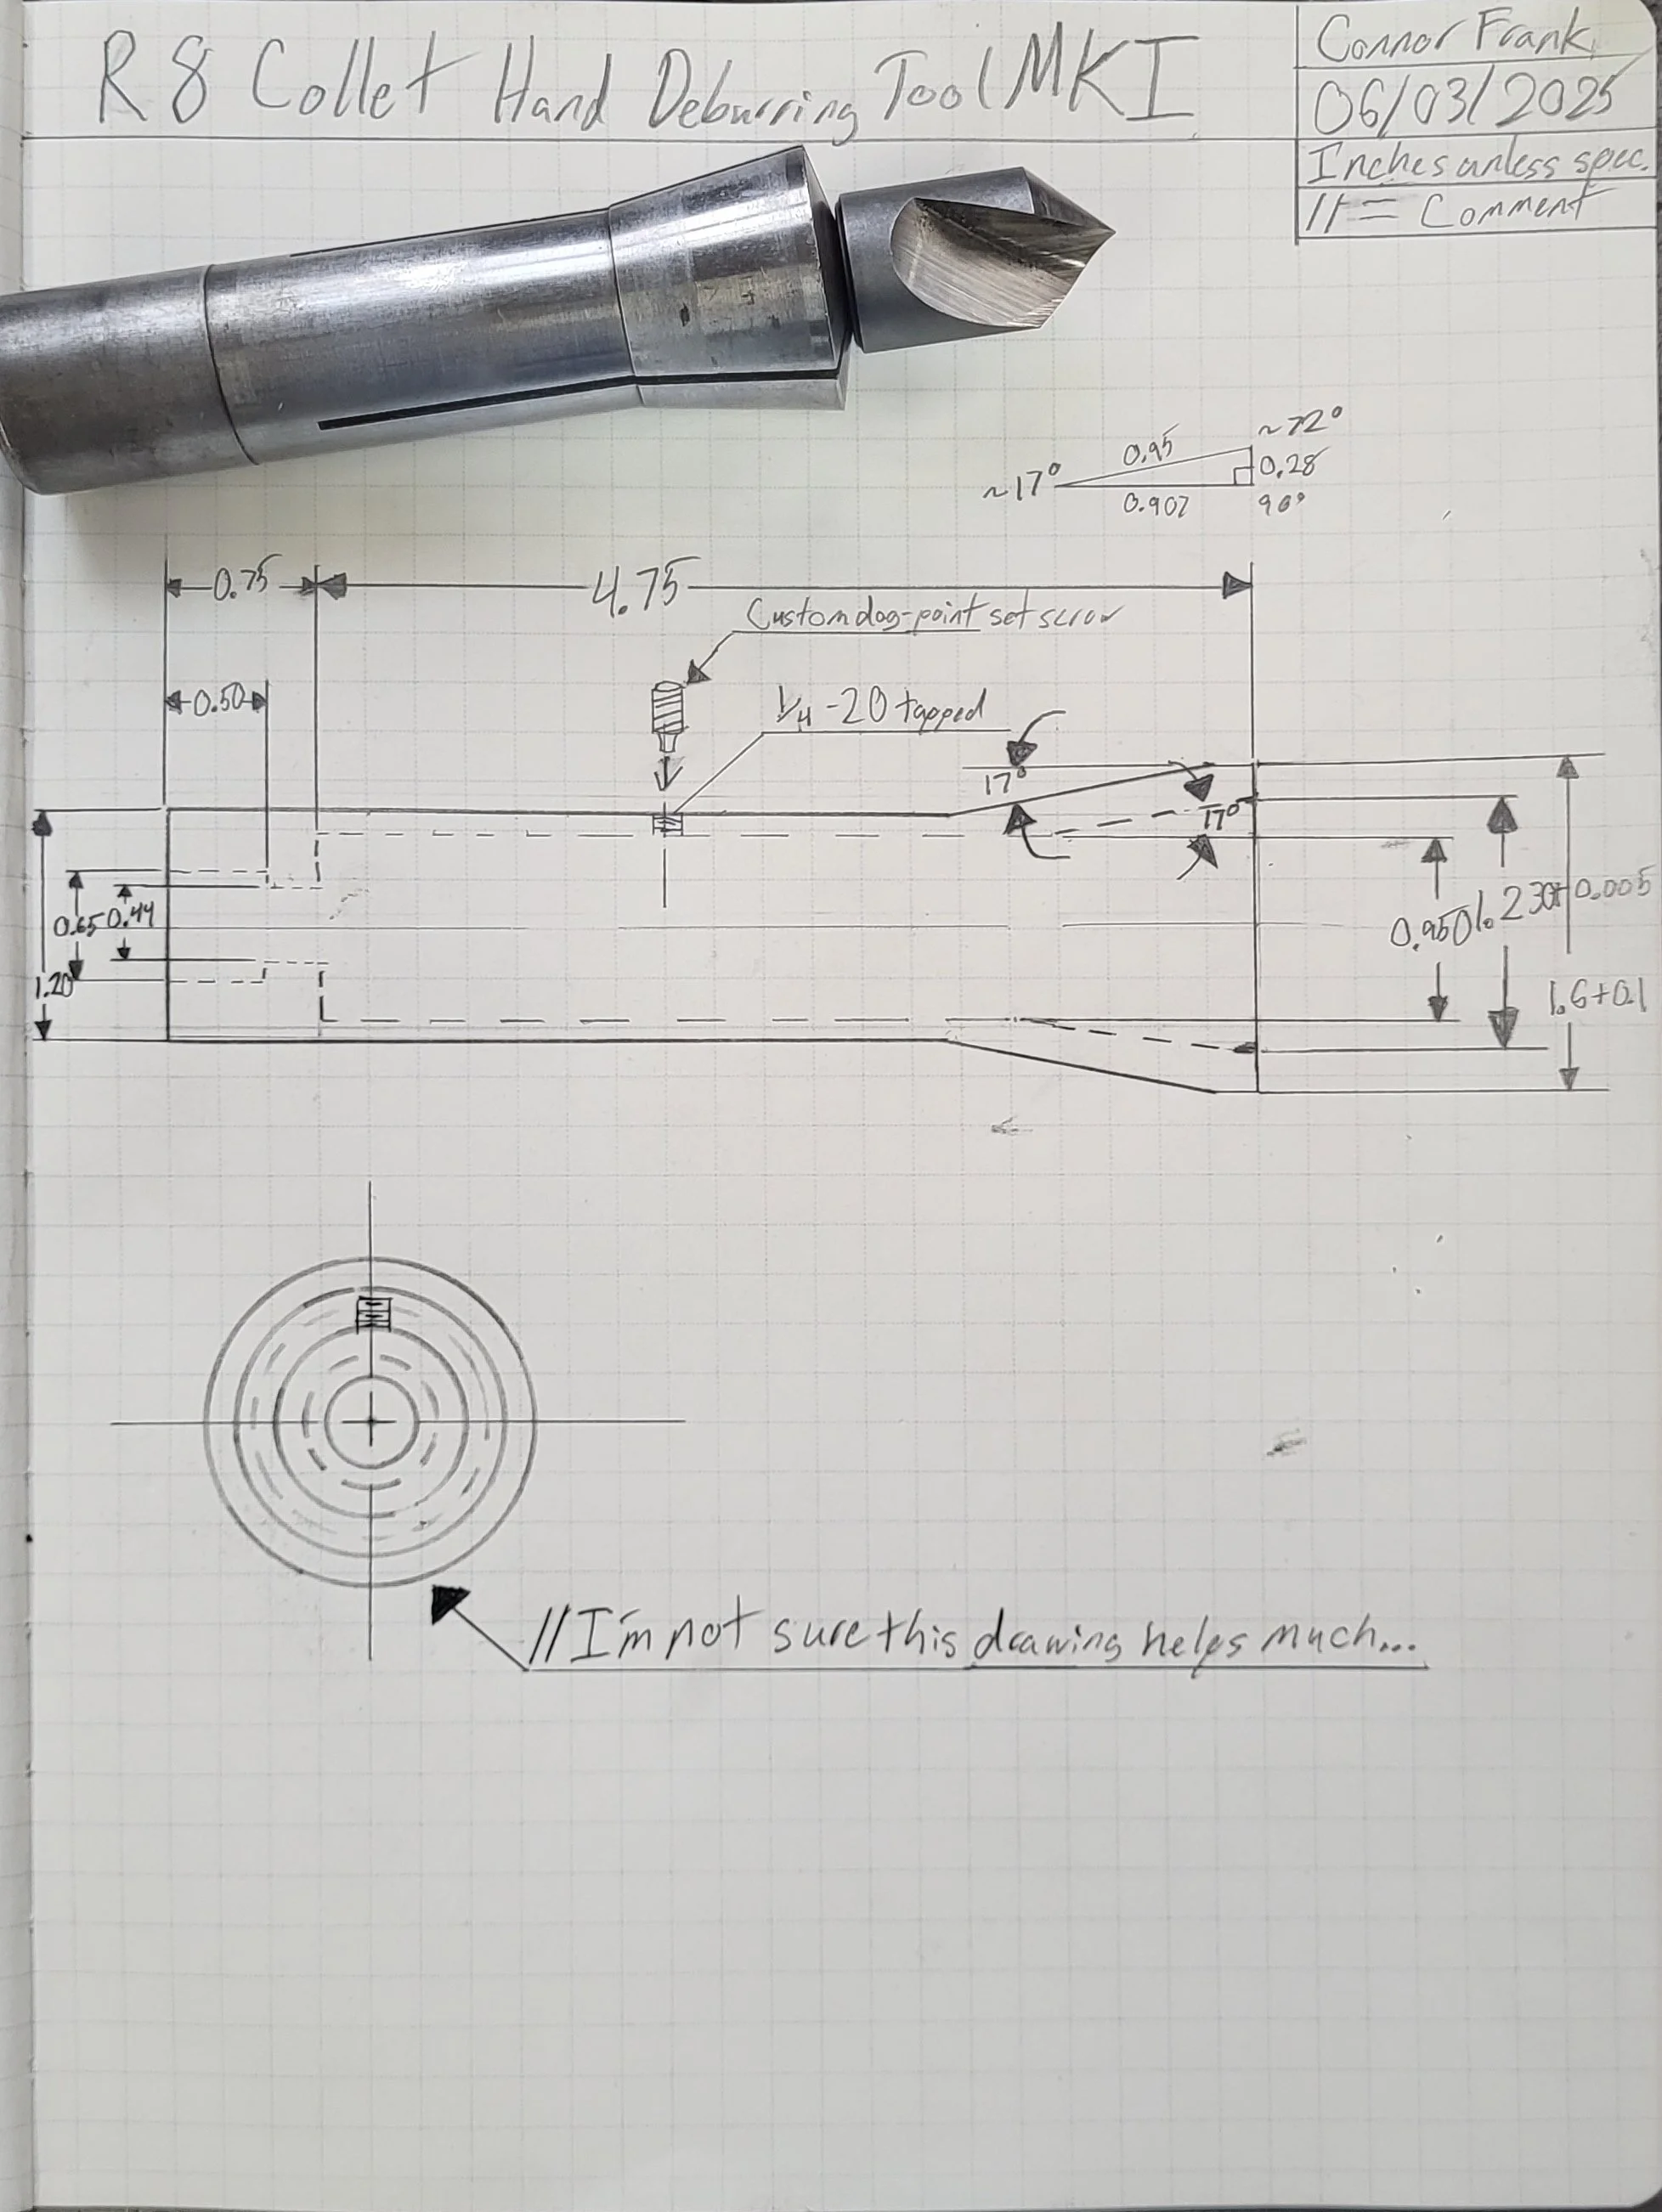 R8 Collet Hand Deburring Tool MKI
Connor Frank
06/03/2025
Inches unless spec.
// = Comment
~72°
0.95
0.28
~17°
0.907
90°
0.75
4.75
Custom dog-point set screw
0.50
1/4-20 tapped
17°
17°
0.65
0.44
1.20
0.950
1.230+0.005
1.6+0.1
// I'm not sure this drawing helps much...